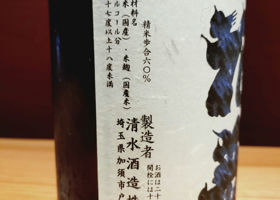 精米歩合六〇%
材料名
米(国産)・米麹(国産米)
アルコール分
十七度以上十八度未満
お酒は二十
開栓には十
製造者
清水酒造株
埼玉県加須市戸